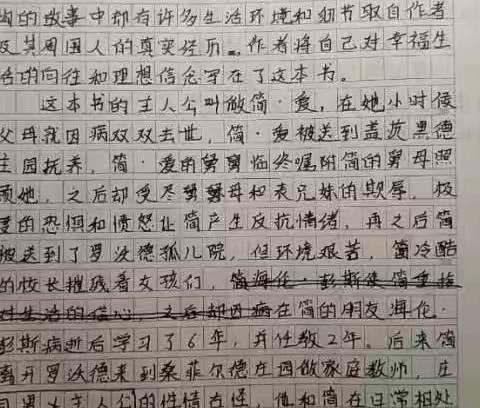 的故事中却有许多生活环境和细节取自作者
及其周围人的真实经历。作者将自己对幸福生
活的向往和理想信念写在了这本书。
这本书的主人公叫做简·爱,在她小时候
父母就因病双双去世,简·爱被送到盖茨黑德
庄园抚养,简·爱的舅舅临终嘱咐简的舅母照
顾她,之后却受尽舅母和表兄妹的欺辱,极
度的恐惧和愤怒让简产生反抗情绪,再之后简
被送到了罗沃德孤儿院,但环境艰苦,冷酷
的校长摧残着女孩们,简海伦·彭斯使简重拾
对生活的信心 之后却因病在简的朋友海伦·
彭斯病逝后学习了6年,并任教2年。后来简
离开罗沃德来到桑菲尔德庄园做家庭教师,庄
园男主人公的性情古怪,他和简在日常相处